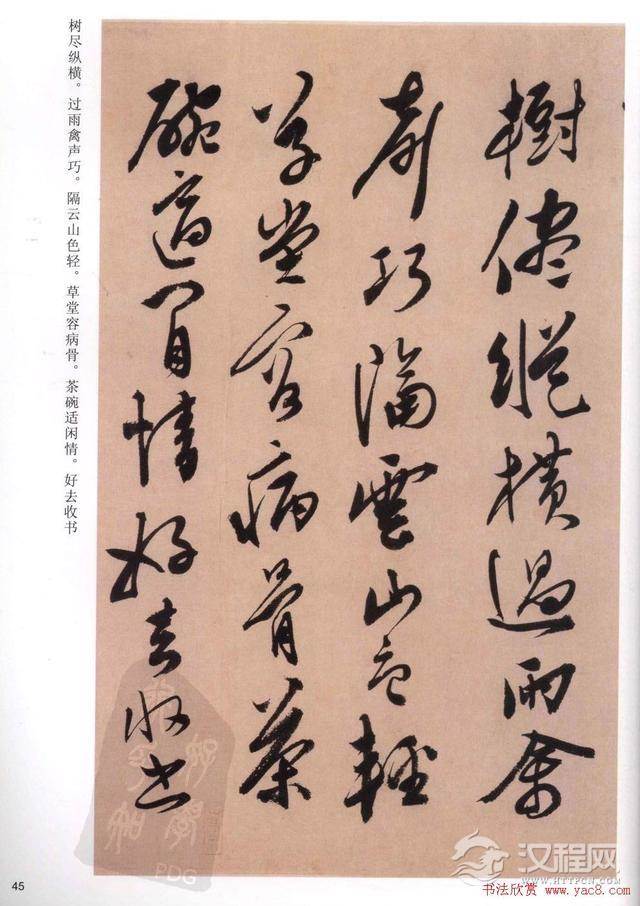 樹儘縱橫過雨禽
聲巧隔雲山色輕
草堂容病骨茶
碗適閒情好去收书
树尽纵横。过雨禽声巧。隔云山色轻。草堂容病骨。茶碗适闲情。好去收书
45
PDG
汉程网
WWW.HTTPCN.COM
书法欣赏 www.yac8.com